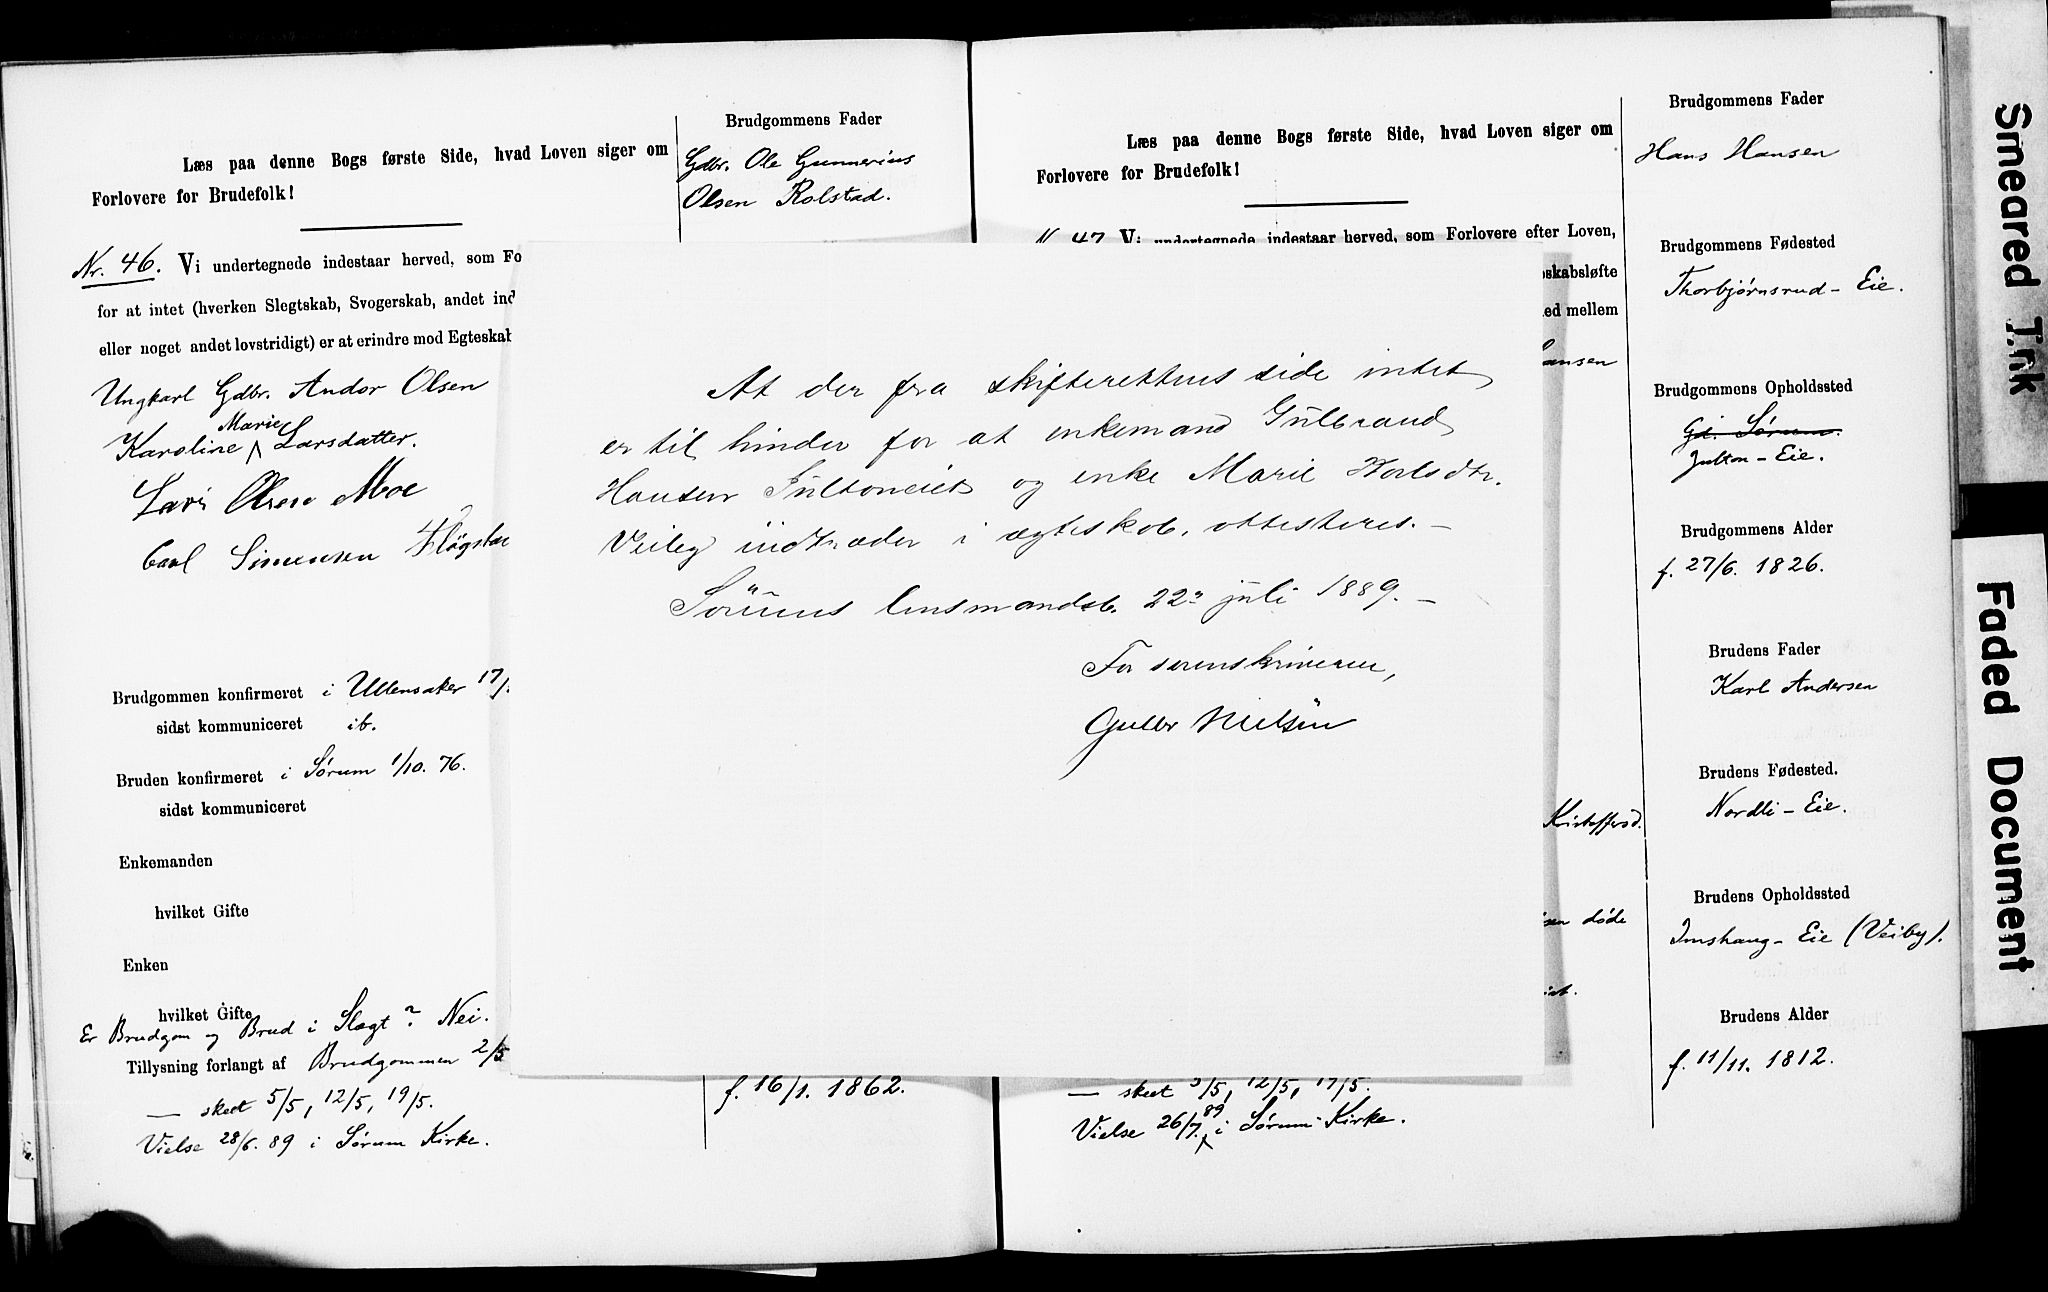 Læs paa denne Bogs første Side, hvad Loven siger om
Forlovere for Brudefolk!
Nr. 46. Vi undertegnede indestaar herved, som Fo
for at intet (hverken Slegtskab, Svogerskab, andet ind
eller noget andet lovstridigt) er at erindre mod Egteskab
Ungkarl Gdbr. Andor Olsen
Marie
Karoline Larsdatter.
Lars Olsen Moe
Carl Simensen
Brudgommen konfirmeret i Ullensaker 17/
sidst kommuniceret ib.
Bruden konfirmeret i Sørum 1/10. 76.
sidst kommuniceret
Enkemanden
hvilket Gifte
Enken
hvilket Gifte
Er Brudgom og Brud i Slægt? Nei.
Tillysning forlangt af Brudgommen 2/5
— skeet 5/5, 12/5, 19/5.
Vielse 28/6. 89 i Sørum Kirke.
Brudgommens Fader
Gdbr. Ole Gunnerius
Olsen Rolstad.
f. 16/1. 1862.
At der fra skifterettens side intet
er til hinder for at enkemand Gulbrand
Hansen Jultoneiet og enke Marie Karlsdtr.
Veiby indtræder i ægteskab, attesteres. —
Sørums lensmandsb. 22n juli 1889. —
For sorenskriveren,
Gulbr Nielsen
Læs paa denne Bogs første Side, hvad Loven siger om
Forlovere for Brudefolk!
N. 47. Vi undertegnede indestaar herved, som Forlovere efter Loven,
skabsløfte
ed mellem
ansen
Kristoffersd.
sen døde
— skeet 5/5, 12/5, 19/5.
89
Vielse 26/7. i Sørum Kirke.
Brudgommens Fader
Hans Hansen
Brudgommens Fødested
Thorbjørnsrud - Eie.
Brudgommens Opholdssted
Gd. Sørum.
Julton - Eie.
Brudgommens Alder
f. 27/6. 1826.
Brudens Fader
Karl Andersen
Brudens Fødested.
Nordli - Eie.
Brudens Opholdssted
Imshaug - Eie (Veiby).
Brudens Alder
f. 11/11. 1812.
Smeared Ink
Faded Document